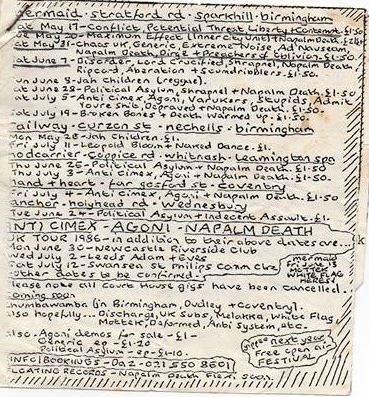 ermaid · stratford rd · sparkhill · birmingham
at May 17 - Conflict, Potential Threat, Liberty + Contempt. £1.50
ue May 20 - Maximum Effect (Inner City Unit) + Napalm Death
at May 31 - Chaos UK, Generic, Extreme Noise Ad Nauseam,
Napalm Death, Dirge + Preachers of Oblivion. £1.50
at June 7 - Disorder, Lord Crucified, Shrapnel, Napalm Death,
Ripcord, Aberation + Scumdribblers. £1.50.
un June 8 - Jah Children (reggae).
at June 28 - Political Asylum, Shrapnel + Napalm Death. £1.50
at July 5 - Anti Cimex, Agoni, Varukers, Stupids, Admit
You're Shit, Deformed + Napalm Death. £1.50.
at July 19 - Broken Bones + Death Warmed up. £1.50.
railway · curzon st · nechells · birmingham
Mon May 28 - Jah Children. £1.
Fri July 11 - Leopold Bloom + Naked Dance. £1.
hodcarrier · coppice rd · whitnash · leamington spa
Thu June 5 - Political Asylum + Napalm Death. £1.50
Thu July 3 - Anti Cimex, Agoni + Napalm Death. £1.50.
hand + heart · far gosford st · coventry
Fri July 4 - Anti Cimex, Agoni + Napalm Death. £1.50
anchor · holyhead rd · Wednesbury
Tue June 24 - Political Asylum + Indecent Assault. £1.
NTI CIMEX - AGONI - NAPALM DEATH
UK TOUR 1986 - in addition to their above dates are...
Mon June 30 - Newcastle Riverside Club
Wed July 2 - Leeds Adam + Eves
Sat July 12 - Swansea St Philips Comm Ctre
other dates to be confirmed.
mermaid
Fri June 13
METTEK
WHITE FLAG
HERESY
lease note all Court House gigs have been cancelled.
coming soon
humbawamba (in Birmingham, Dudley + Coventry)
also hopefully... Discharge, UK Subs, Melakka, White Flag,
Mottek, Deformed, Anti System, etc.
also - Agoni demos for sale - £1 -
Generic ep - £1.20
Political Asylum - ep - £1.10
gipped next year
Free open air
FESTIVAL
INFO/BOOKINGS - Daz - 021 550 8601
LOATING RECORDS - Napalm Death Flexi soon